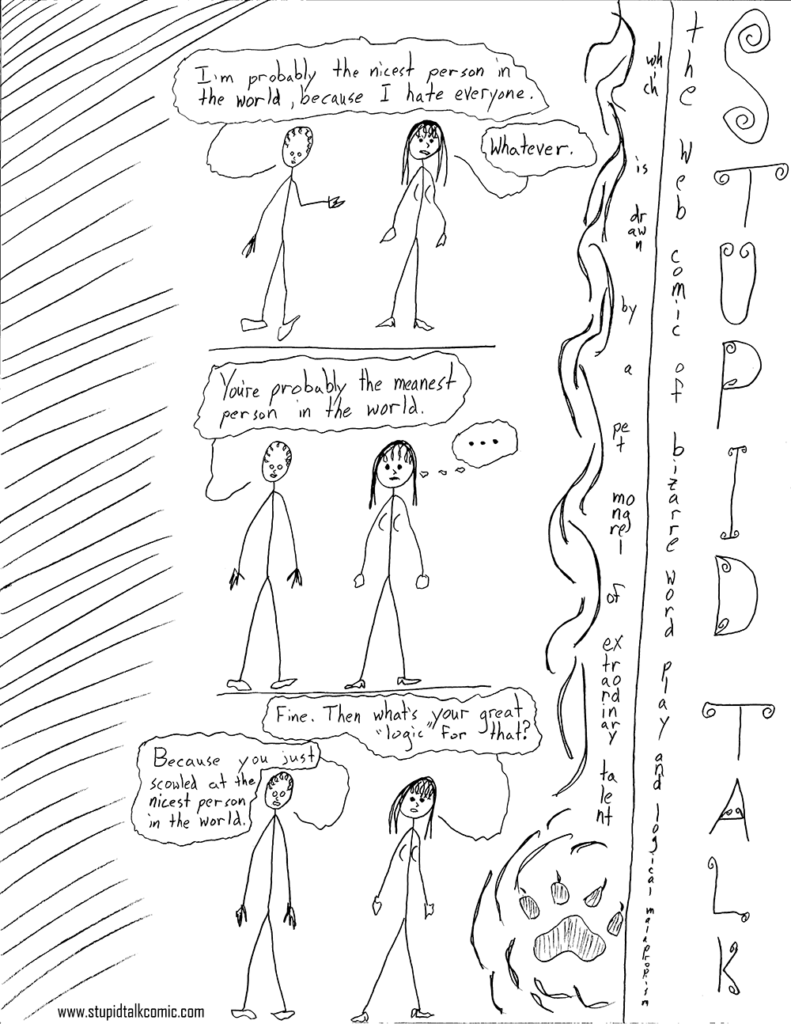 I'm probably the nicest person in
the world, because I hate everyone.
Whatever.
You're probably the meanest
person in the world.
...
Fine. Then what's your great
"logic" for that?
Because you just
scowled at the
nicest person
in the world.
www.stupidtalkcomic.com
STUPID TALK
the web comic of bizarre word play and logical malapropism
which is drawn by a pet mongrel of extraordinary talent